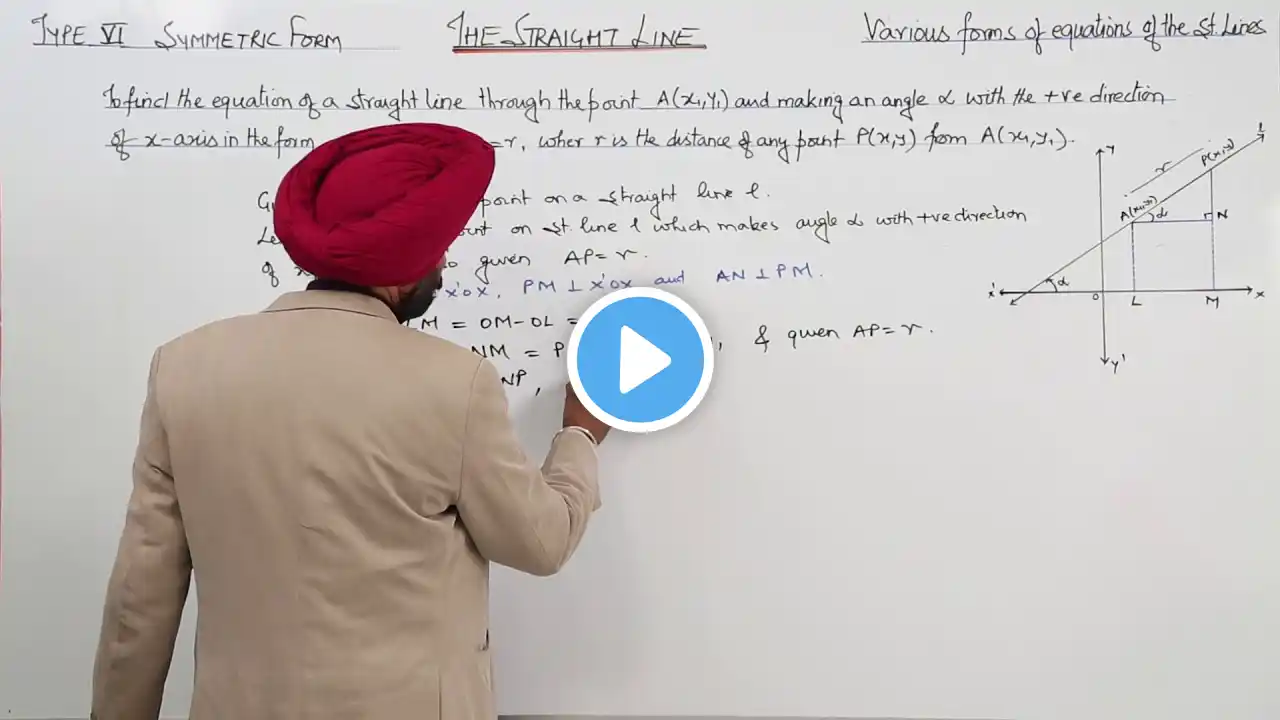 TYPE VI SYMMETRIC FORM
THE STRAIGHT LINE
Various forms of equations of the St. Lines
To find the equation of a straight line through the point A(x₁,y₁) and making an angle α with the +ve direction
of x-axis in the form =r, wher r is the distance of any point P(x,y) from A(x₁,y₁).
point on a straight line l.
on St. line l which makes angle α with +ve direction
of given AP=r.
X'OX, PM ⊥ X'OX and AN ⊥ PM.
LM = OM-OL =
NM = P , & given AP=r.
NP,
Y
l
P(x,y)
r
A(x₁,y₁)
α
N
X'
α
O
L
M
X
Y'